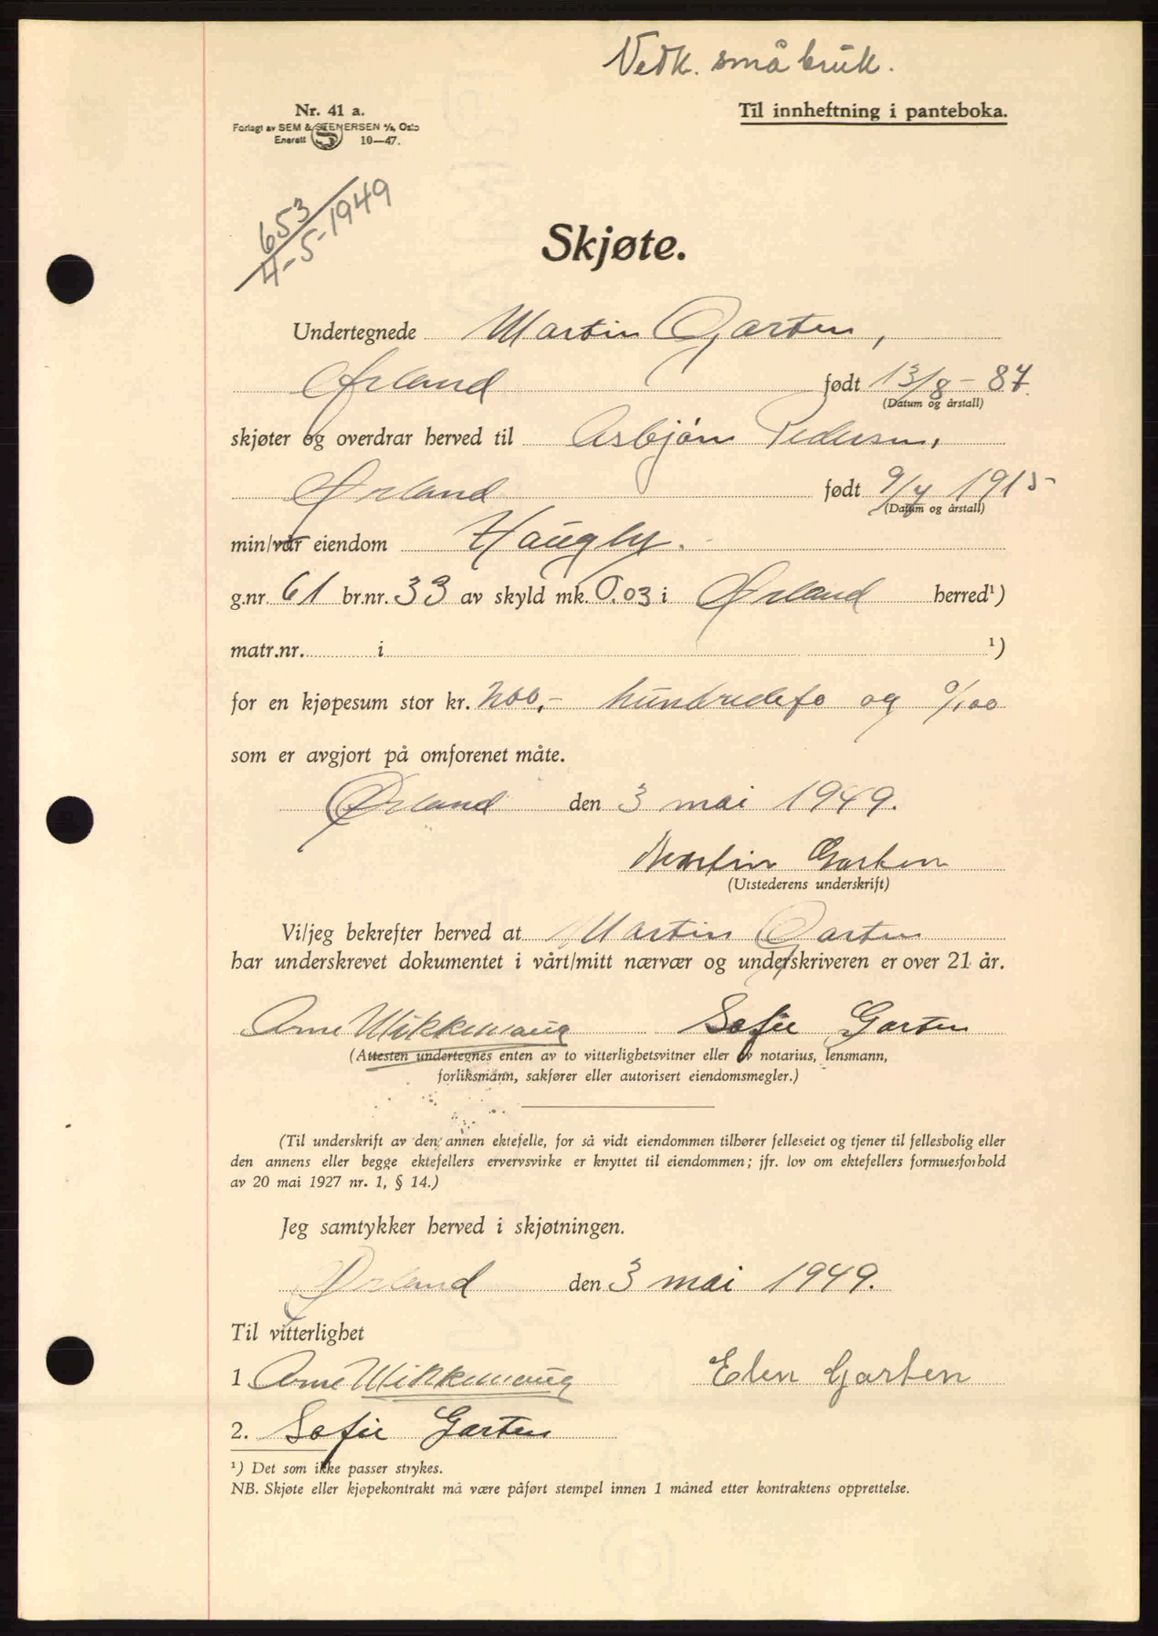 Vedk. småbruk.
Nr. 41 a.
Forlagt av SEM & STENERSEN A/s, Oslo
Enerett 10—47.
Til innheftning i panteboka.
653
4-5-1949
Skjøte.
Undertegnede Martin Garten,
Ørland født 13/8-87.
(Datum og årstall)
skjøter og overdrar herved til Asbjørn Pedersen,
Ørland født 9/7 1915
(Datum og årstall)
min/vår eiendom Haugly.
g.nr. 61 br.nr. 33 av skyld mk. 0.03 i Ørland herred¹)
matr.nr. i ¹)
for en kjøpesum stor kr. 200,- hundrede og 0/100
som er avgjort på omforenet måte.
Ørland den 3 mai 1949.
Martin Garten
(Utstederens underskrift)
Vi/jeg bekrefter herved at Martin Garten
har underskrevet dokumentet i vårt/mitt nærvær og underskriveren er over 21 år.
Arne Sofie Garten
(Attesten undertegnes enten av to vitterlighetsvitner eller av notarius, lensmann,
forliksmann, sakfører eller autorisert eiendomsmegler.)
(Til underskrift av den annen ektefelle, for så vidt eiendommen tilhører felleseiet og tjener til fellesbolig eller
den annens eller begge ektefellers ervervsvirke er knyttet til eiendommen; jfr. lov om ektefellers formuesforhold
av 20 mai 1927 nr. 1, § 14.)
Jeg samtykker herved i skjøtningen.
Ørland den 3 mai 1949.
Til vitterlighet
1 Arne Elen Garten
2. Sofie Garten
¹) Det som ikke passer strykes.
NB. Skjøte eller kjøpekontrakt må være påført stempel innen 1 måned etter kontraktens opprettelse.